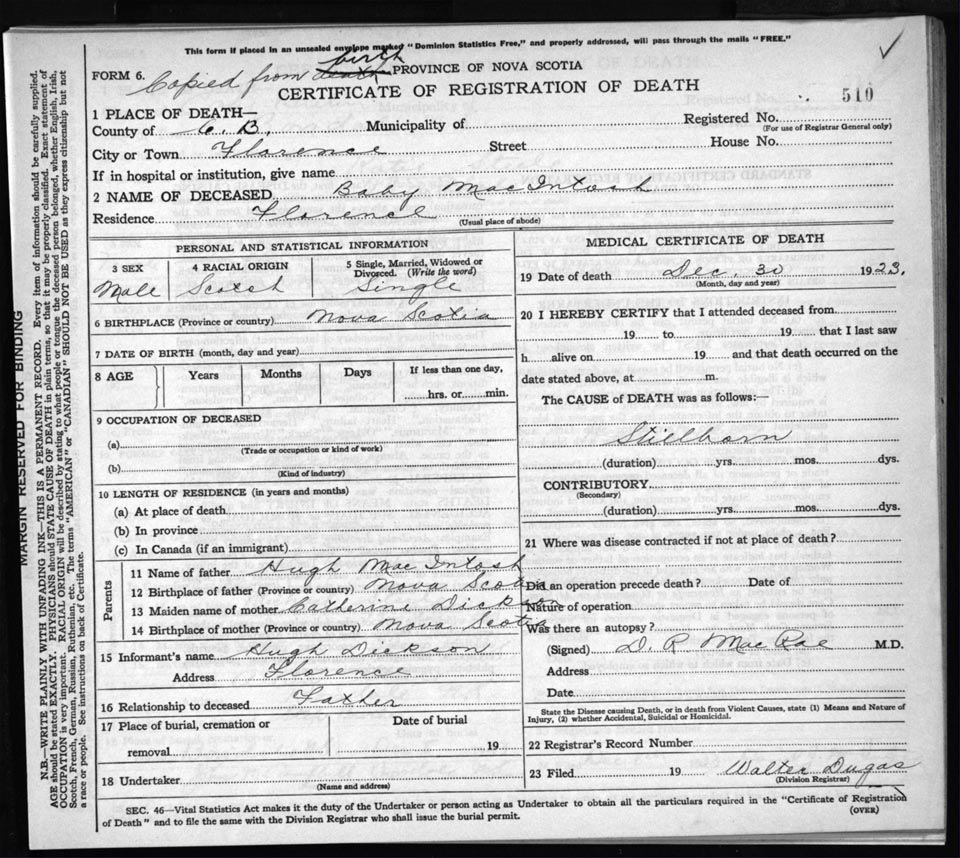 This form if placed in an unsealed envelope marked "Dominion Statistics Free," and properly addressed, will pass through the mails "FREE."
FORM 6. Copied from death birth PROVINCE OF NOVA SCOTIA
CERTIFICATE OF REGISTRATION OF DEATH
510
1 PLACE OF DEATH—
Registered No.
(For use of Registrar General only)
County of C. B. Municipality of
City or Town Florence Street House No.
If in hospital or institution, give name
2 NAME OF DECEASED Baby MacIntosh
Residence Florence
(Usual place of abode)
PERSONAL AND STATISTICAL INFORMATION
3 SEX 4 RACIAL ORIGIN 5 Single, Married, Widowed or Divorced. (Write the word)
Male Scotch Single
6 BIRTHPLACE (Province or country) Nova Scotia
7 DATE OF BIRTH (month, day and year)
8 AGE Years Months Days If less than one day,
hrs. or min.
9 OCCUPATION OF DECEASED
(a)
(Trade or occupation or kind of work)
(b)
(Kind of industry)
10 LENGTH OF RESIDENCE (in years and months)
(a) At place of death
(b) In province
(c) In Canada (if an immigrant)
Parents
11 Name of father Hugh MacIntosh
12 Birthplace of father (Province or country) Nova Scotia
13 Maiden name of mother Catherine Dickson
14 Birthplace of mother (Province or country) Nova Scotia
15 Informant's name Hugh Dickson
Address Florence
16 Relationship to deceased Father
17 Place of burial, cremation or Date of burial
removal 19
18 Undertaker
(Name and address)
MEDICAL CERTIFICATE OF DEATH
19 Date of death Dec. 30 1923.
(Month, day and year)
20 I HEREBY CERTIFY that I attended deceased from
19 to 19 that I last saw
h alive on 19 and that death occurred on the
date stated above, at m.
The CAUSE of DEATH was as follows:—
Stillborn
(duration) yrs. mos. dys.
CONTRIBUTORY
(Secondary)
(duration) yrs. mos. dys.
21 Where was disease contracted if not at place of death?
Did an operation precede death? Date of
Nature of operation
Was there an autopsy?
(Signed) D. R MacRae M.D.
Address
Date
State the Disease causing Death, or in death from Violent Causes, state (1) Means and Nature of
Injury, (2) whether Accidental, Suicidal or Homicidal.
22 Registrar's Record Number
23 Filed 19 Walter Dugas
(Division Registrar)
SEC. 46—Vital Statistics Act makes it the duty of the Undertaker or person acting as Undertaker to obtain all the particulars required in the "Certificate of Registration
of Death" and to file the same with the Division Registrar who shall issue the burial permit.
(OVER)
MARGIN RESERVED FOR BINDING
N.B.—WRITE PLAINLY WITH UNFADING INK—THIS IS A PERMANENT RECORD. Every item of information should be carefully supplied.
AGE should be stated EXACTLY. PHYSICIANS should STATE CAUSE OF DEATH in plain terms, so that it may be properly classified. Exact statement of
OCCUPATION is very important. RACIAL ORIGIN will be described by stating to what people or tongue the deceased person belonged, whether English, Irish,
Scotch, French, German, Russian, Ruthenian, etc. The terms "AMERICAN" or "CANADIAN" SHOULD NOT BE USED as they express citizenship but not
a race or people. See instructions on back of Certificate.